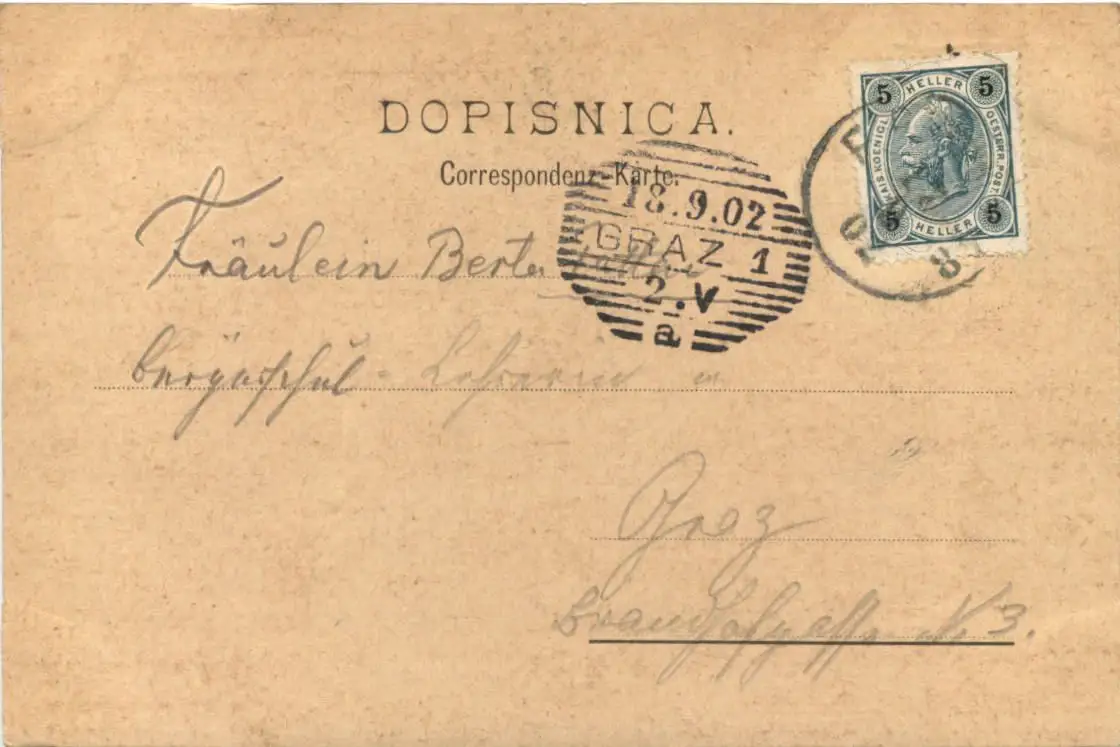 DOPISNICA.
Correspondenz-Karte.
5 HELLER 5
KAIS. KOENIGL. OESTERR. POST.
5 HELLER 5
18.9.02
GRAZ 1
2.V
a
Fräulein Berta
Bürgerschul-Lehrerin
Graz
Brandhofgasse N 3.